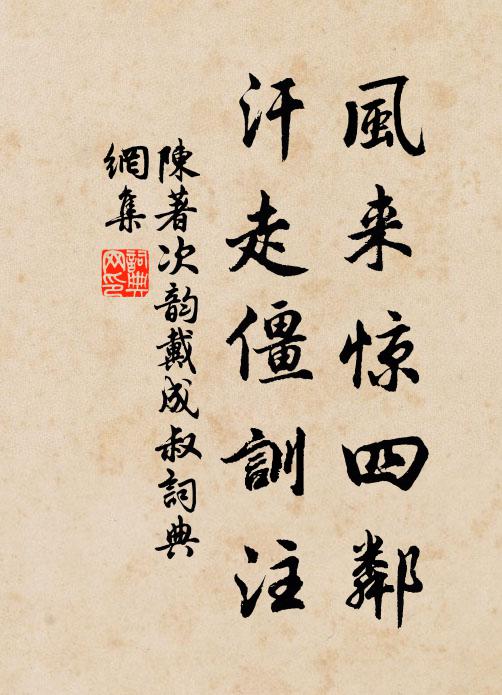 風来惊四鄰
汗走僵訓注
陳著次韵戴成叔詞典
網集
詞典
网印